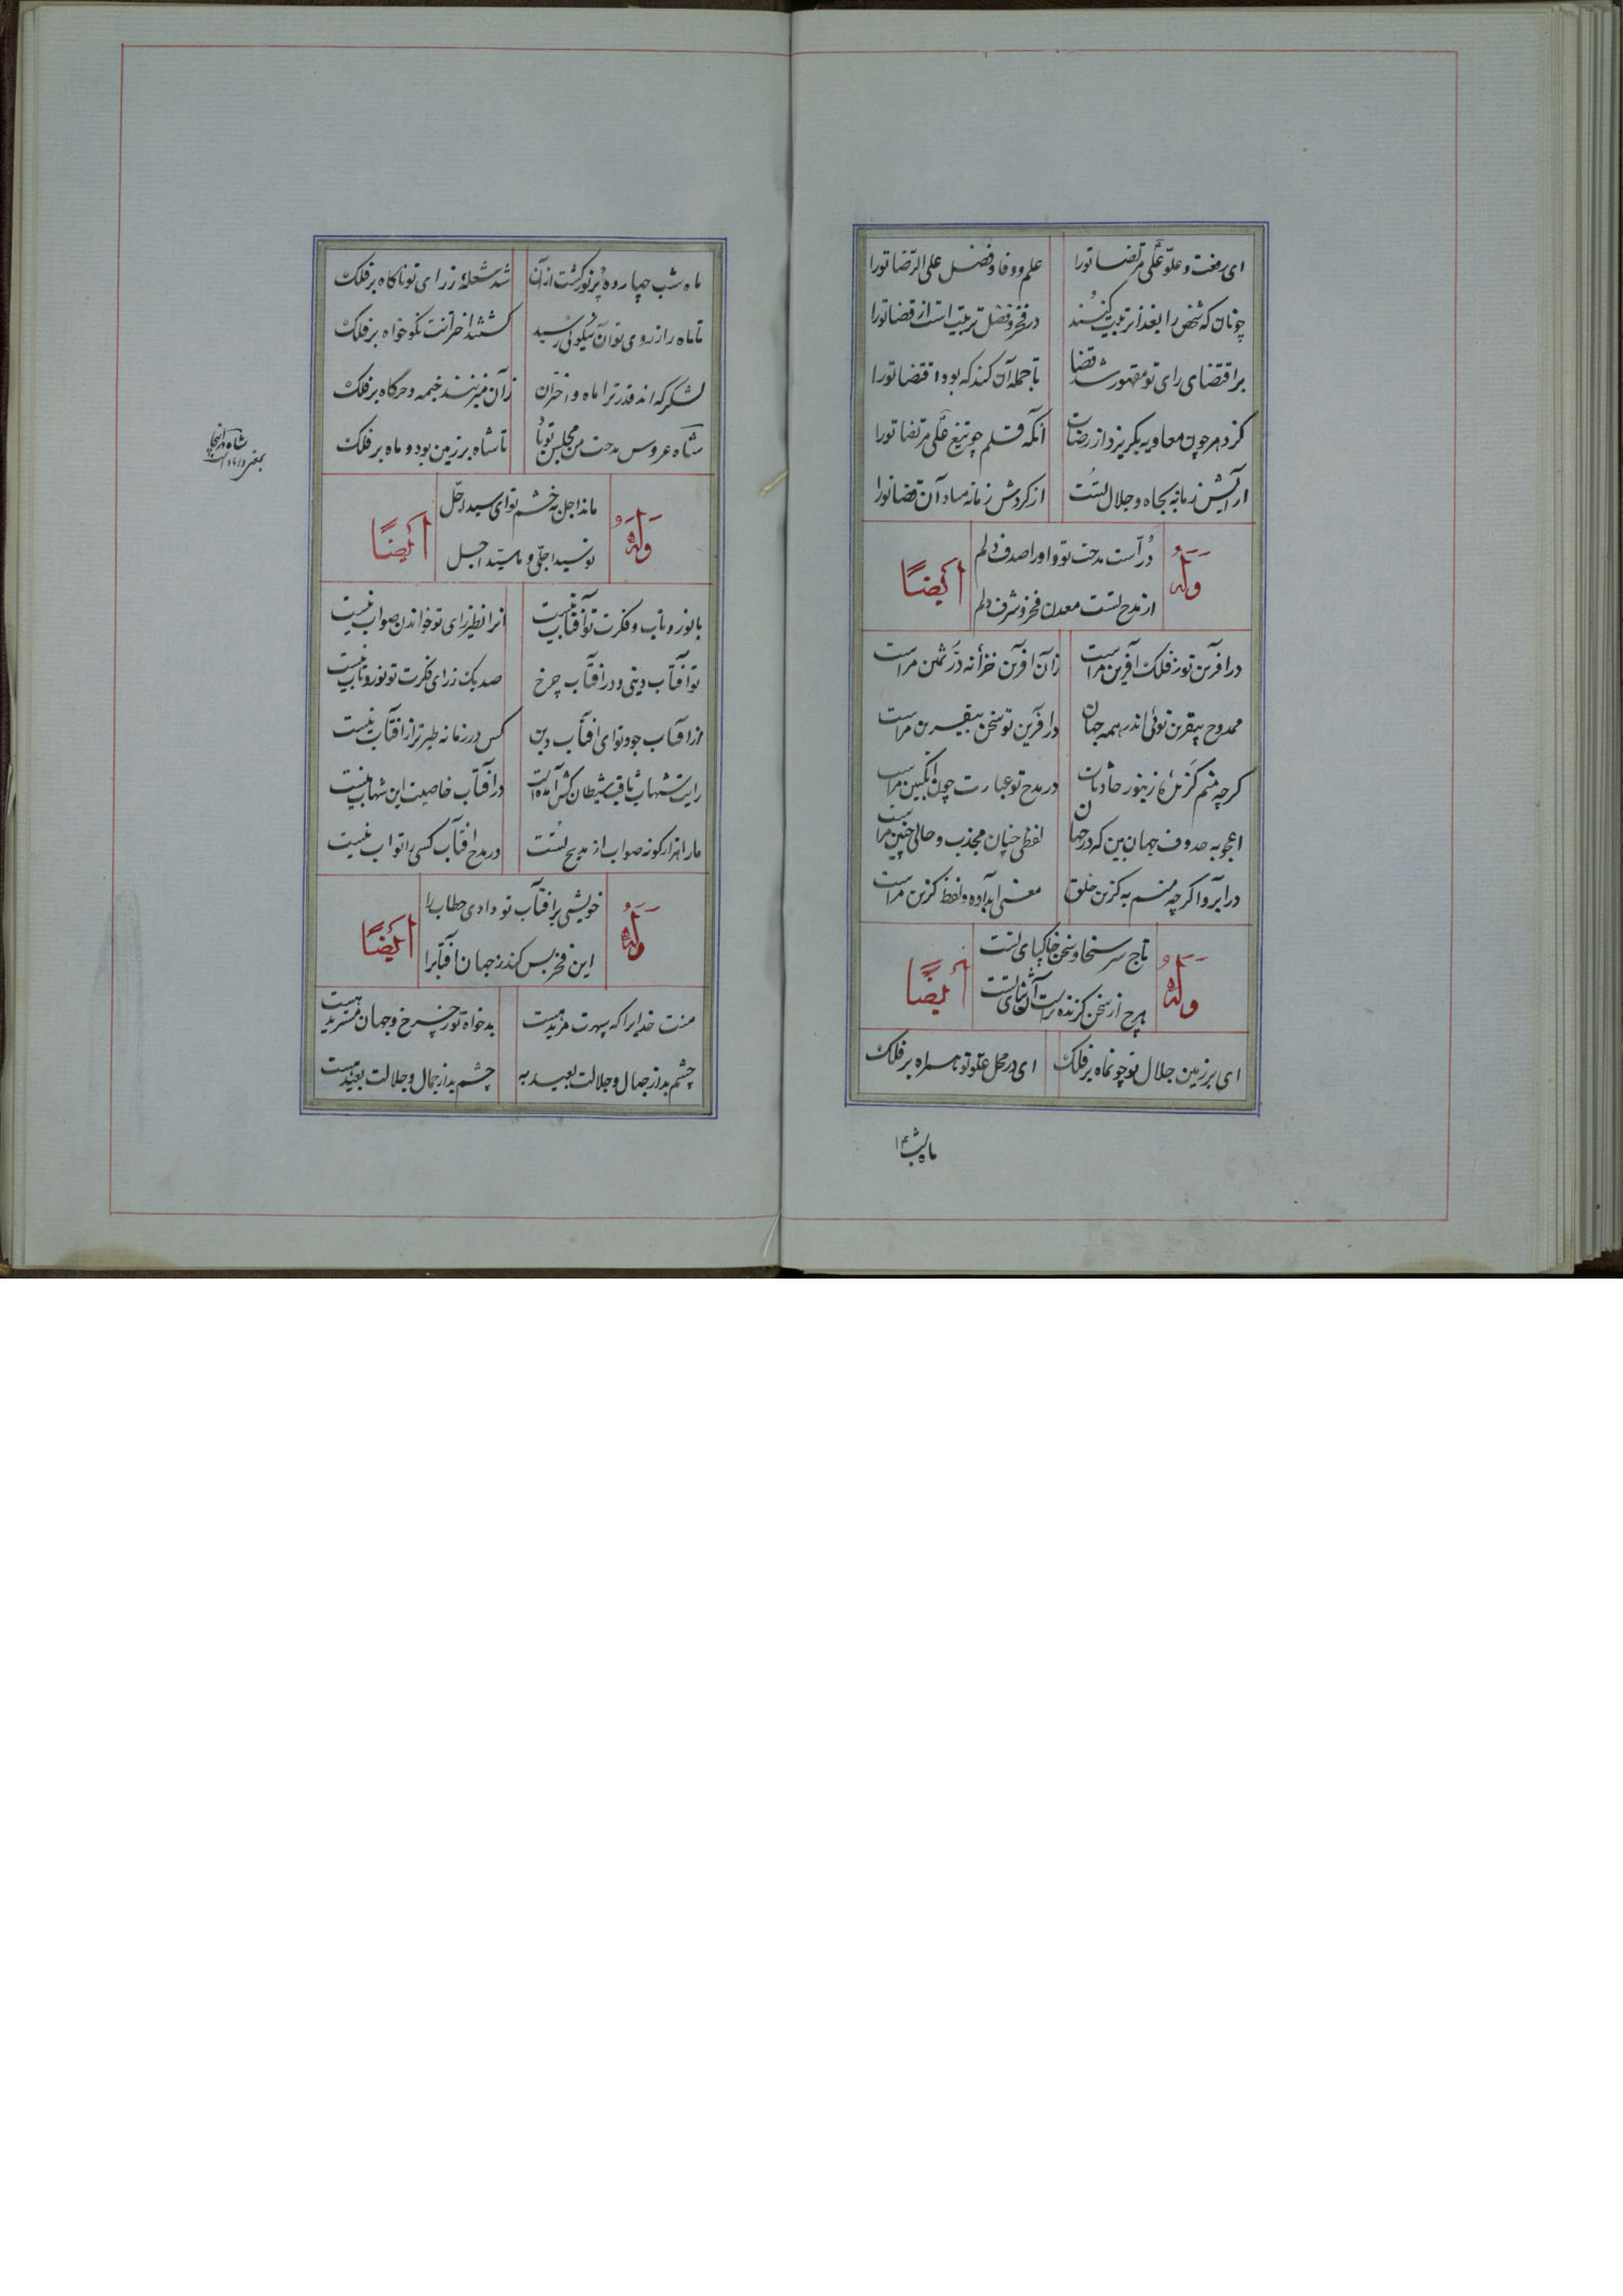 ای رفعت و علوّ علی مرتضا تورا علم و وفا و فضل علی الرّضا تورا
چونان که شخص را بغذا تربیت کنند در فخر و فضل تربیت است از قضا تورا
بر اقتضای رای تو مقهور شد قضا تا جمله آن کند که بود اقتضا تورا
آنکه قلم چو تیغ علی مرتضا تورا
ارایش زمانه بجاه و جلال تست از کردش زمانه مباد آن قضا تورا
وَلَهُ درّ است مدحت تو و اورا صدف دلم أیضاً
از مدح تست معدن فخر و شرف دلم
در افرین تو ز فلک آفرین مراست زان افرین خزانه درّ ثمین مراست
ممدوح بیقرین توئی اندر همه جهان در افرین تو سخن بیقرین مراست
کرچه منم کزیدهٔ زنبور حادثات در مدح تو عبارت چون انکبین مراست
اعجوبه صدوف جهان بین که در جهان لفظی چنان مجذب و حالی چنین مراست
معنی ابداده و لفظ کزین مراست
وَلَهُ تاج سر سخا و سخن خاکپای تست أیضاً
هرچ از سخن کزنده تر است آن ثنای تست
ای بر زمین جلال تو چونماه بر فلک ای در محل علو تو همراه بر فلک
ماه شب ۱۴
ماه شب چهارده پر نور کشت از آن شد شعلهٔ ز رای تو ناکاه بر فلک
تا ماه را ز روی تو آن نیکوئی رسید کشتند اخترانت نکو خواه بر فلک
لشکر که اند قدر ترا ماه و اختران زان میزنند خیمه و خرکاه بر فلک
شاه عروس مدحت من مجلس تو باد تا شاه بر زمین بود و ماه بر فلک
شاه در اینجا
بمعنی داماد است
وَلَهُ ماند اجل به خشم تو ای سید اجل أیضاً
تو سید اجلّی و ما سیّد اجل
با نور و تاب و فکرت تو آفتاب نیست انرا نظیر رای تو خواندن صواب نیست
تو آفتاب دینی و در افتاب چرخ صد یک ز رای فکرت تو نور و تاب نیست
از افتاب جود تو ای افتاب دین کس در زمانه طیره تر از افتاب نیست
رایت شهاب ثاقب شیطان کش آمده است در افتاب خاصیت این شهاب نیست
مارا هزار کونه صواب از مدیح تست در مدح افتاب کسی را ثواب نیست
وَلَهُ خویشی بر افتاب تو دادی خطاب را أیضاً
این فخر بس کند ز جهان آفتاب را
منت خدایرا که سپهرت مرید هست بدخواه تو ز چرخ و جهان مستزید هست
چشم بد از جمال و جلالت بعید به چشم بد از جمال و جلالت بعید هست